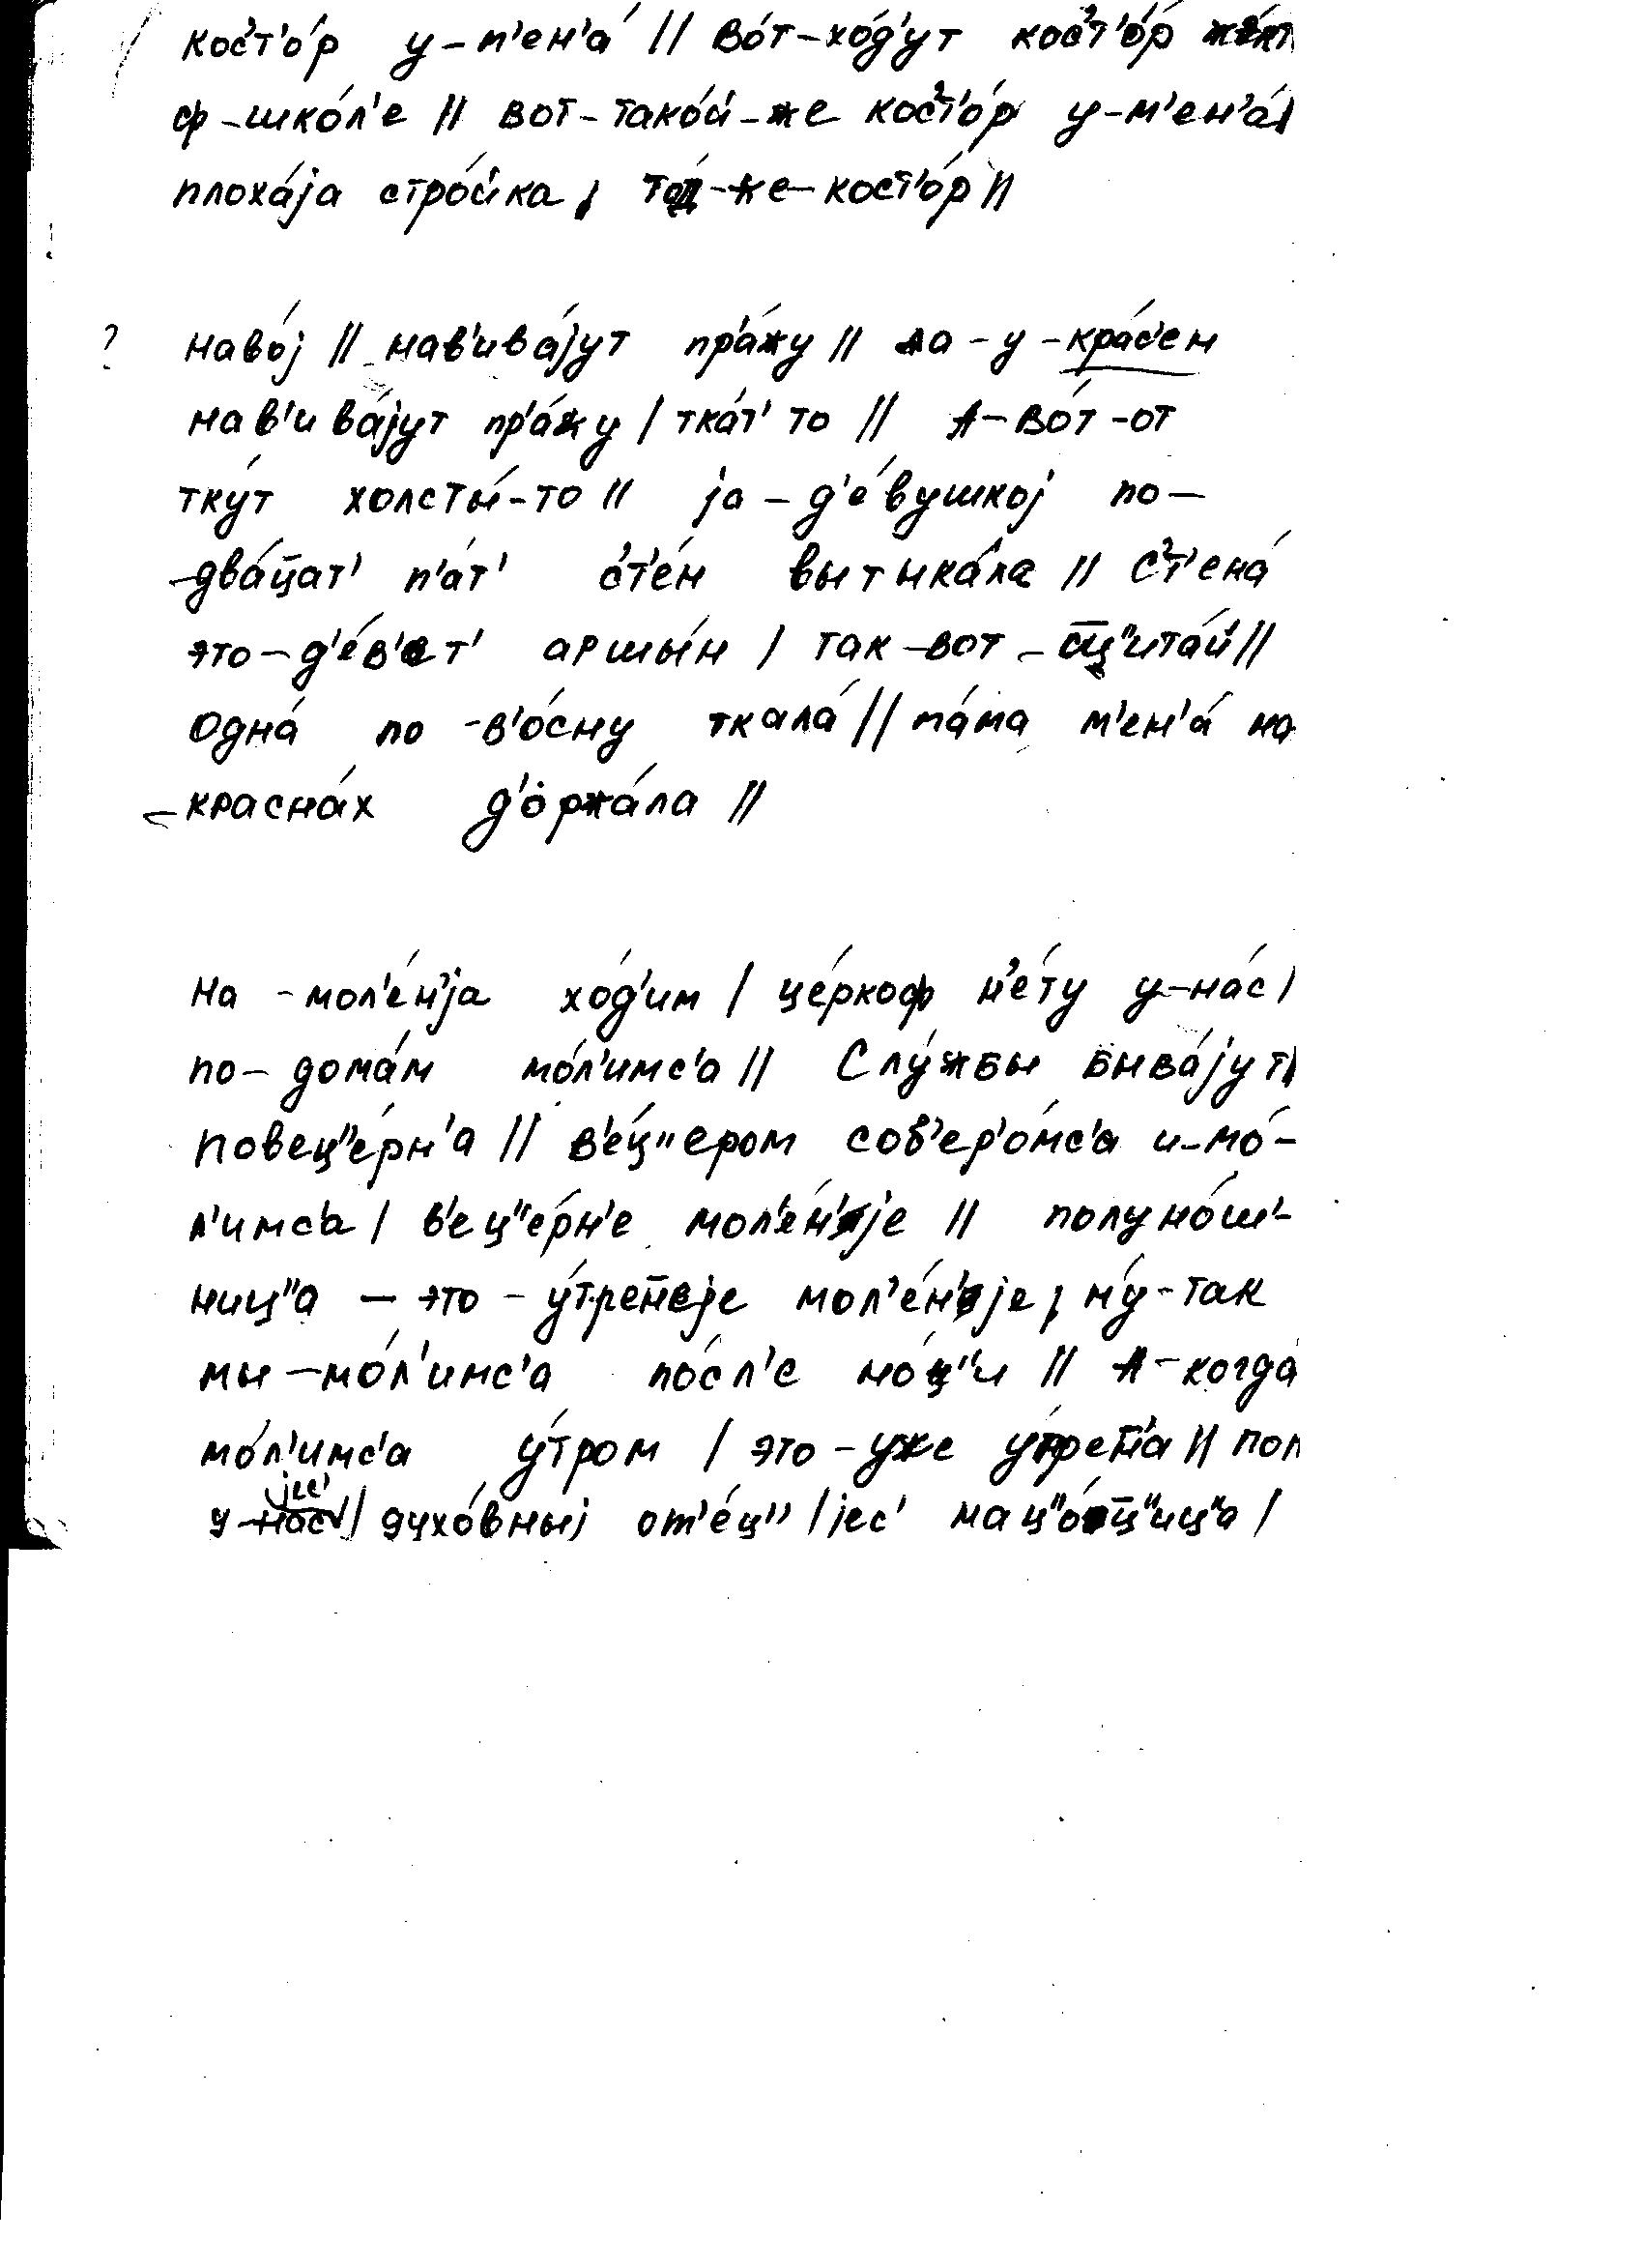 кос'т'о́р у-м'ен'а́ // во́т-хо́д'ут кос'т'о́р
ф-шко́л'е // вот-тако́й-же кос'т'о́р у-м'ен'а́ /
плоха́jа стро́йка / -же-кост'о́р //
? наво́j // нав'ива́jут пр'а́жу // да-у-кра́с'ен
нав'ива́jут пр'а́жу / тка́т' то // А-во́т-от
тку́т холсты́-то // jа-д'е́вушкоj по-
-два́ц̄ат' п'а́т' с'т'е́н вытыка́ла // с'т'ена́
это-д'е́в'ет' аршы́н / так-вот-сц̄"ита́й //
Одна́ по-в'о́сну ткала́ // ма́ма м'ен'а́ на
-красна́х д'оржа́ла //
на-мол'е́н'jа хо́д'им / це́ркоф н'е́ту у-на́с /
по-дома́м мо́л'имс'а // Слу́жбы быва́jут /
повец"е́рн'а // в'е́ц"ером соб'ер'о́мс'а и-мо́-
л'имс'а / в'ец"е́рн'е мол'е́н'jе // полуно́ш'-
ниц"а — это-у́трен̄еjе мол'е́н'jе / ну́-так
мы-мо́л'имс'а по́сл'е но́ц"и // А-когда́
мо́л'имс'а у́тром / это-уже у́трен̄'а // поп
jес'
у-нас / духо́вныj от'е́ц" / jес' нац"о́тц̄"иц"а /